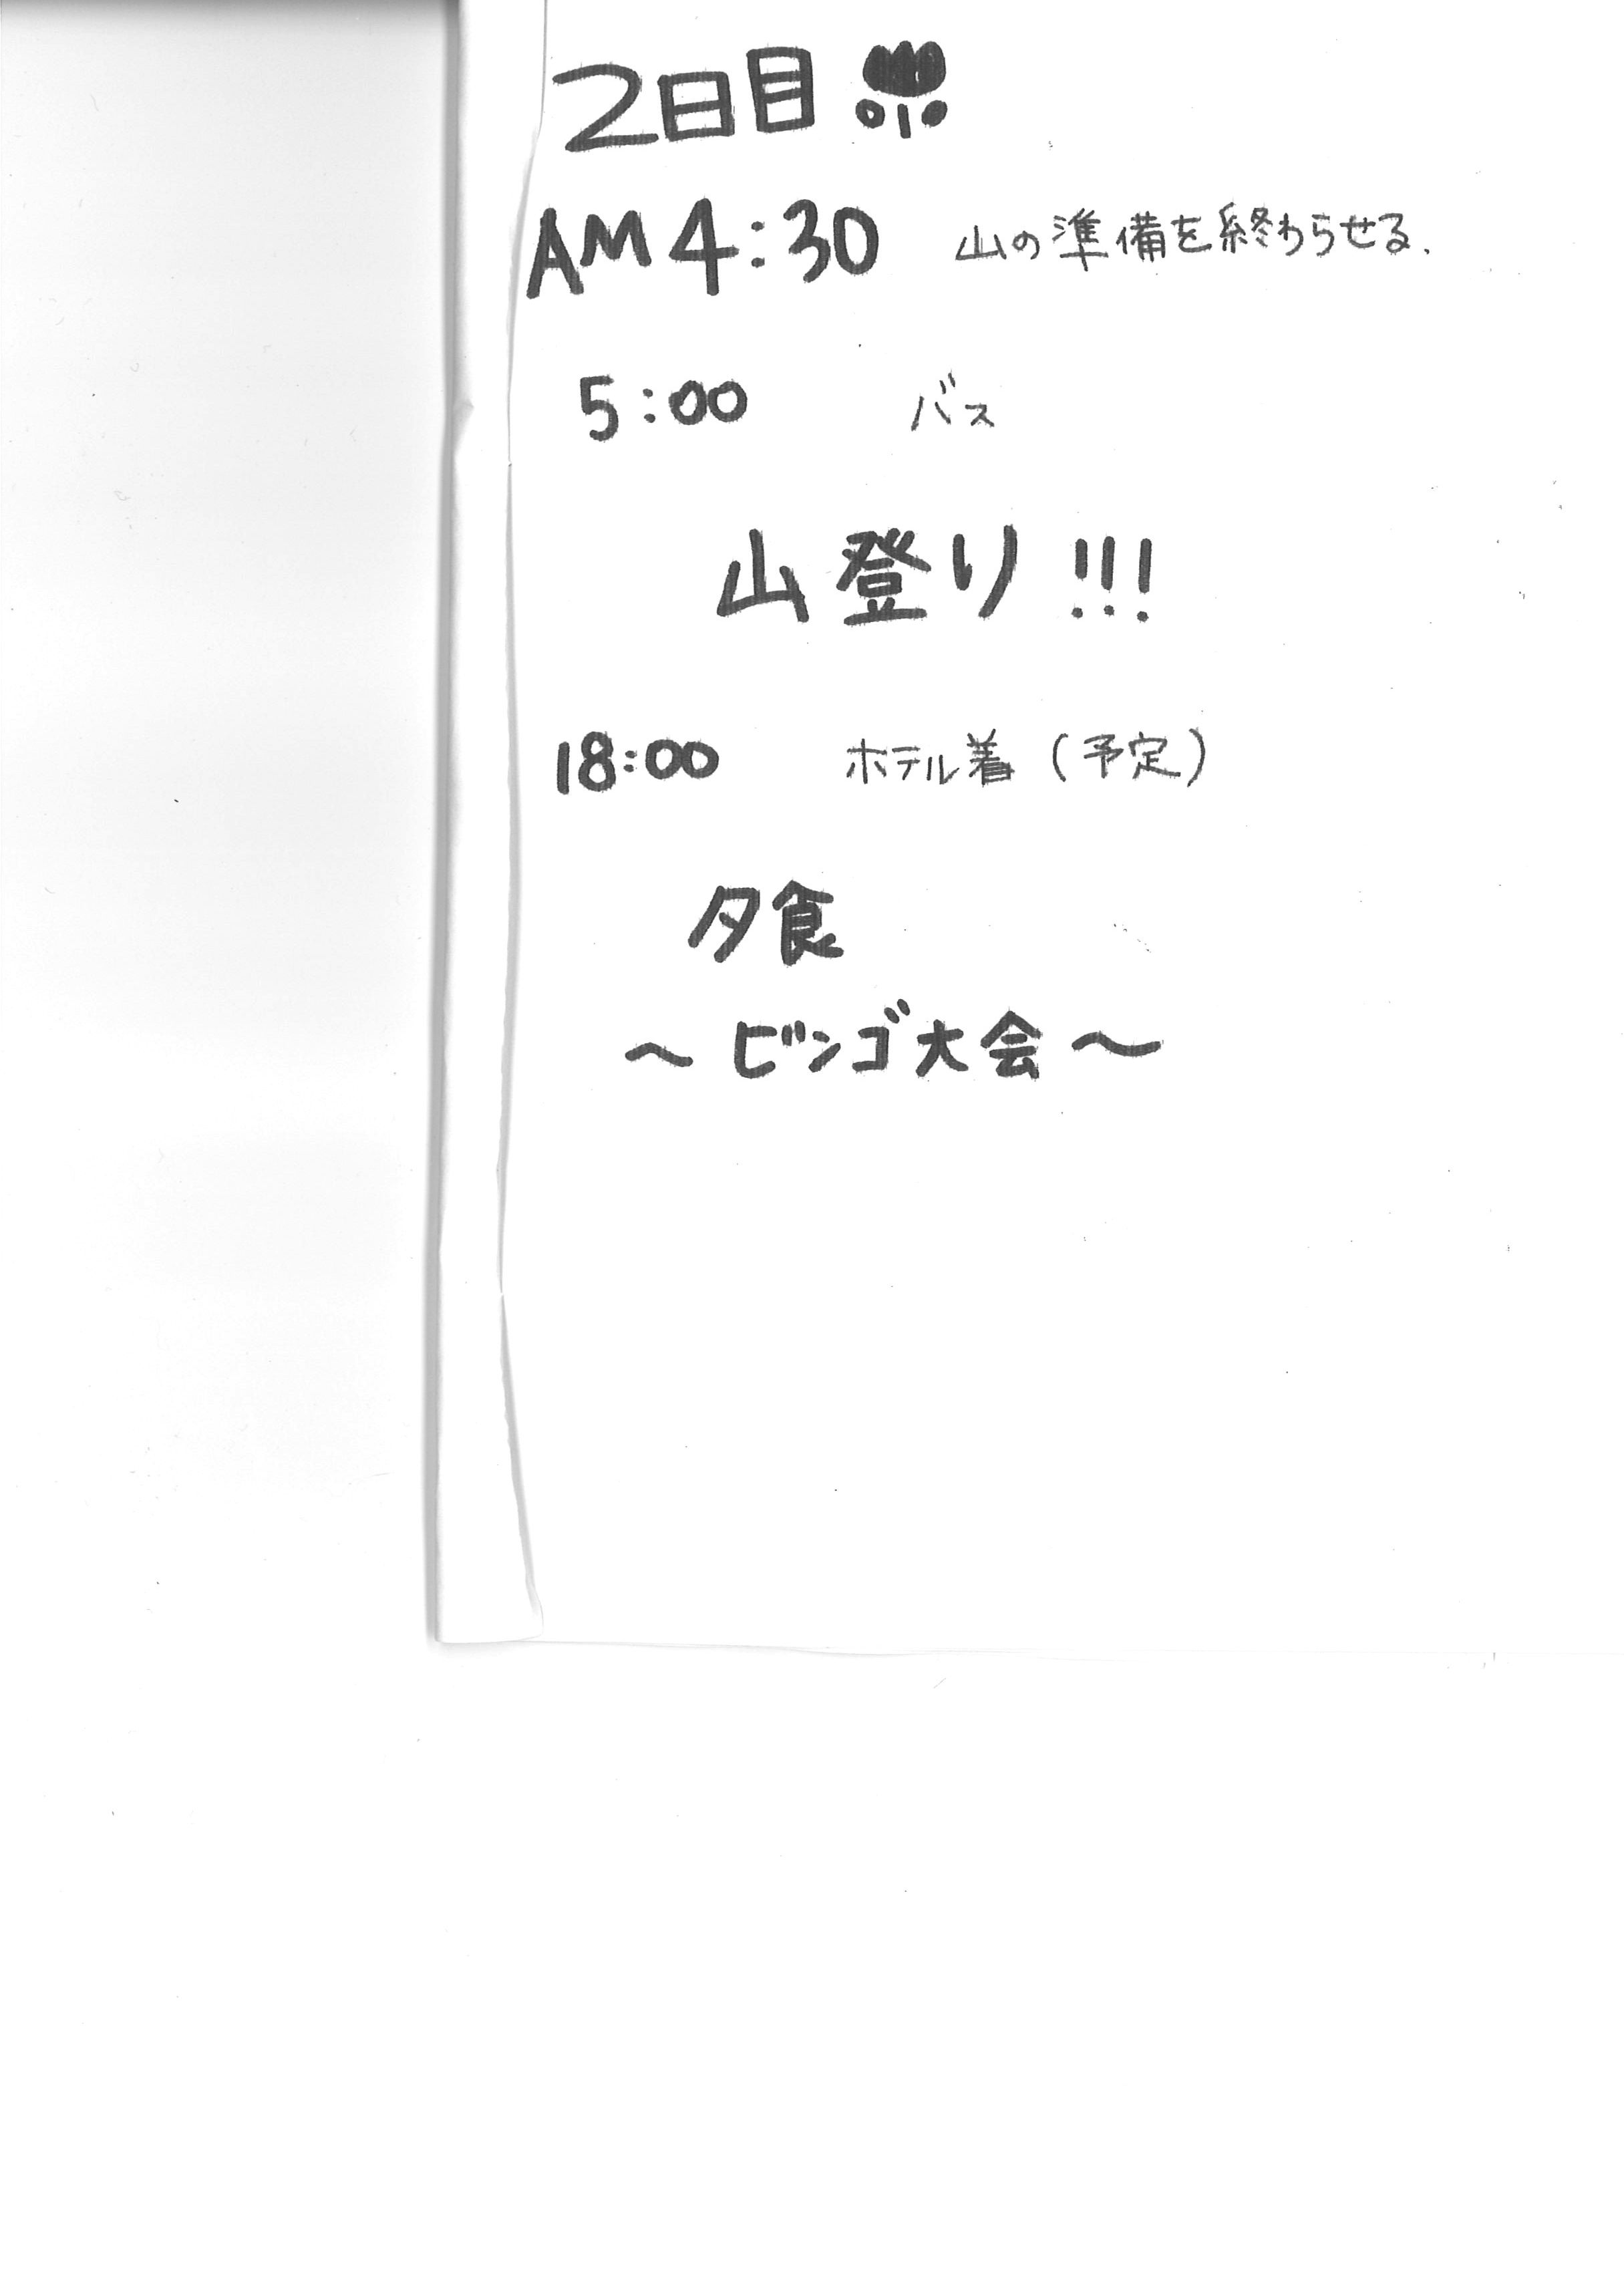 2日目
AM 4:30 山の準備を終わらせる.
5:00 バス
山登り!!!
18:00 ホテル着 (予定)
夕食
〜ビンゴ大会〜